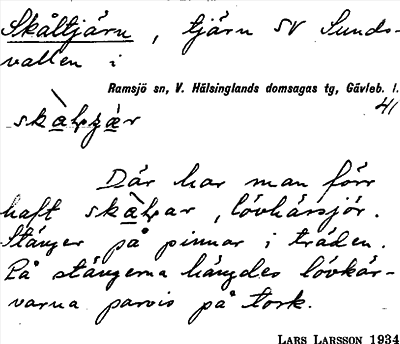 Skåltjärn, tjärn SV Sunds-
vallen i
Ramsjö sn, V. Hälsinglands domsagas tg, Gävleb. l.
41
Där har man förr
haft lövhärsjör.
Stänger på pinnar i träden.
På stängerna hängdes lövkär-
varna parvis på tork.
LARS LARSSON 1934